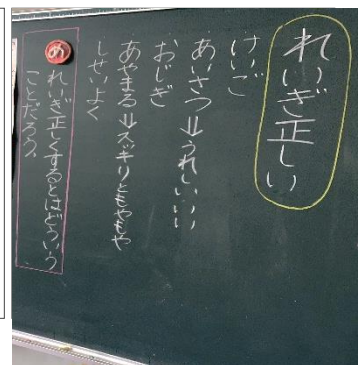 れいぎ正しい
けいご
あいさつ⇒うれしい いい
おじぎ
あやまる⇒スッキリともやもや
しせいよく
め れいぎ正しくするとはどういう
ことだろう。